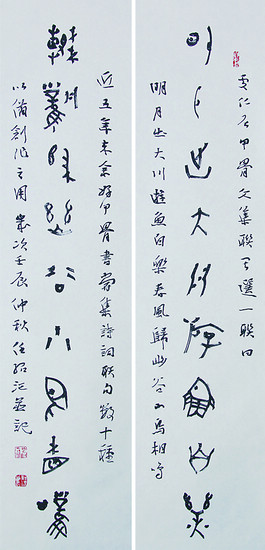 甲骨文集聯選一聯曰
明月出大川游魚自樂
明月出大川遊魚自樂春風歸幽谷山鳥相鳴
近五年來余好甲骨書嘗集詩詞聯句數十種
春風歸幽谷山鳥相鳴
以備創作之用歲次壬辰仲秋任並記